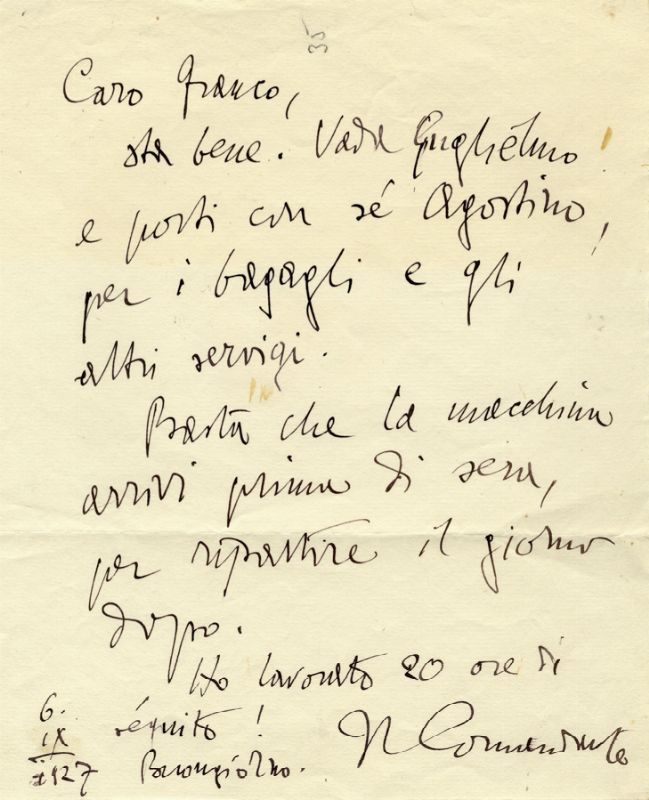 35
Caro Franco,
sta bene. Vada Guglielmo
e porti con sé Agostino,
per i bagagli e gli
altri servigi.
Basta che la macchina
arrivi prima di sera,
per ripartire il giorno
dopo.
Ho lavorato 20 ore di
séguito!
Buongiorno.
Il Comandante
6.
IX
1927